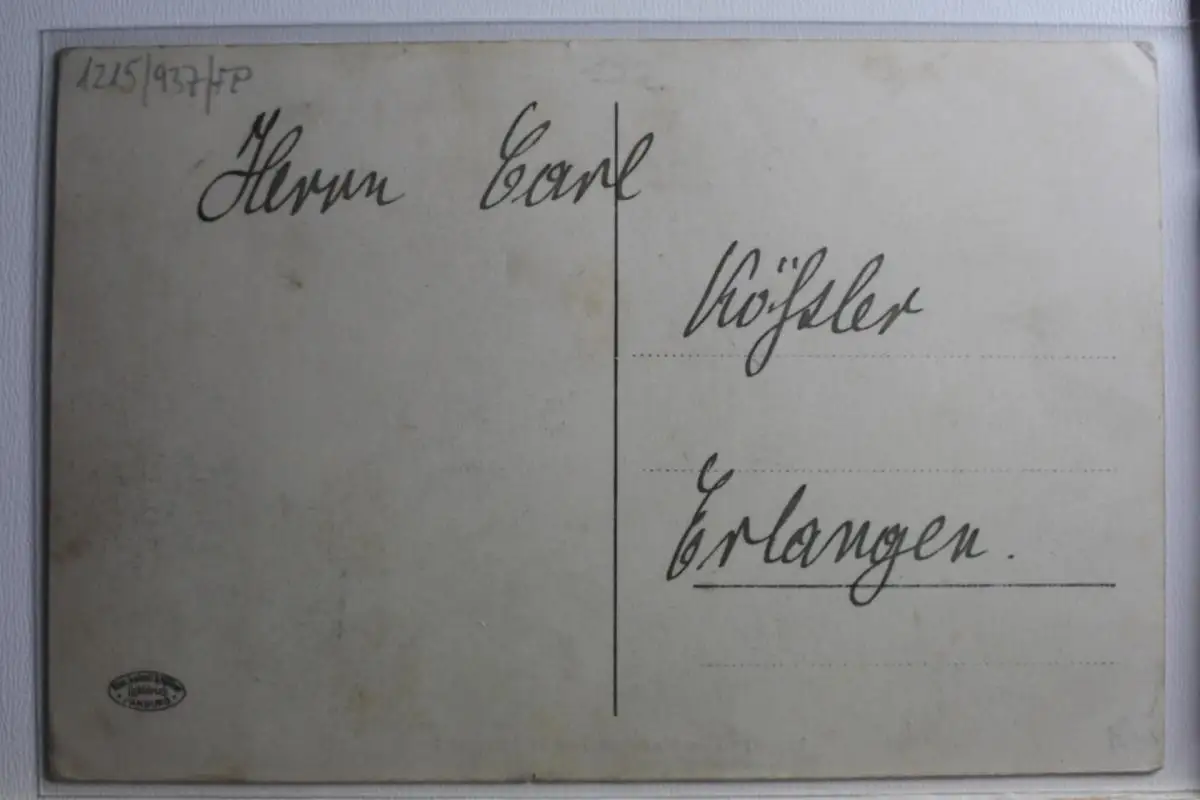 1215/937/FP
Herrn Carl
Kößler
Erlangen.